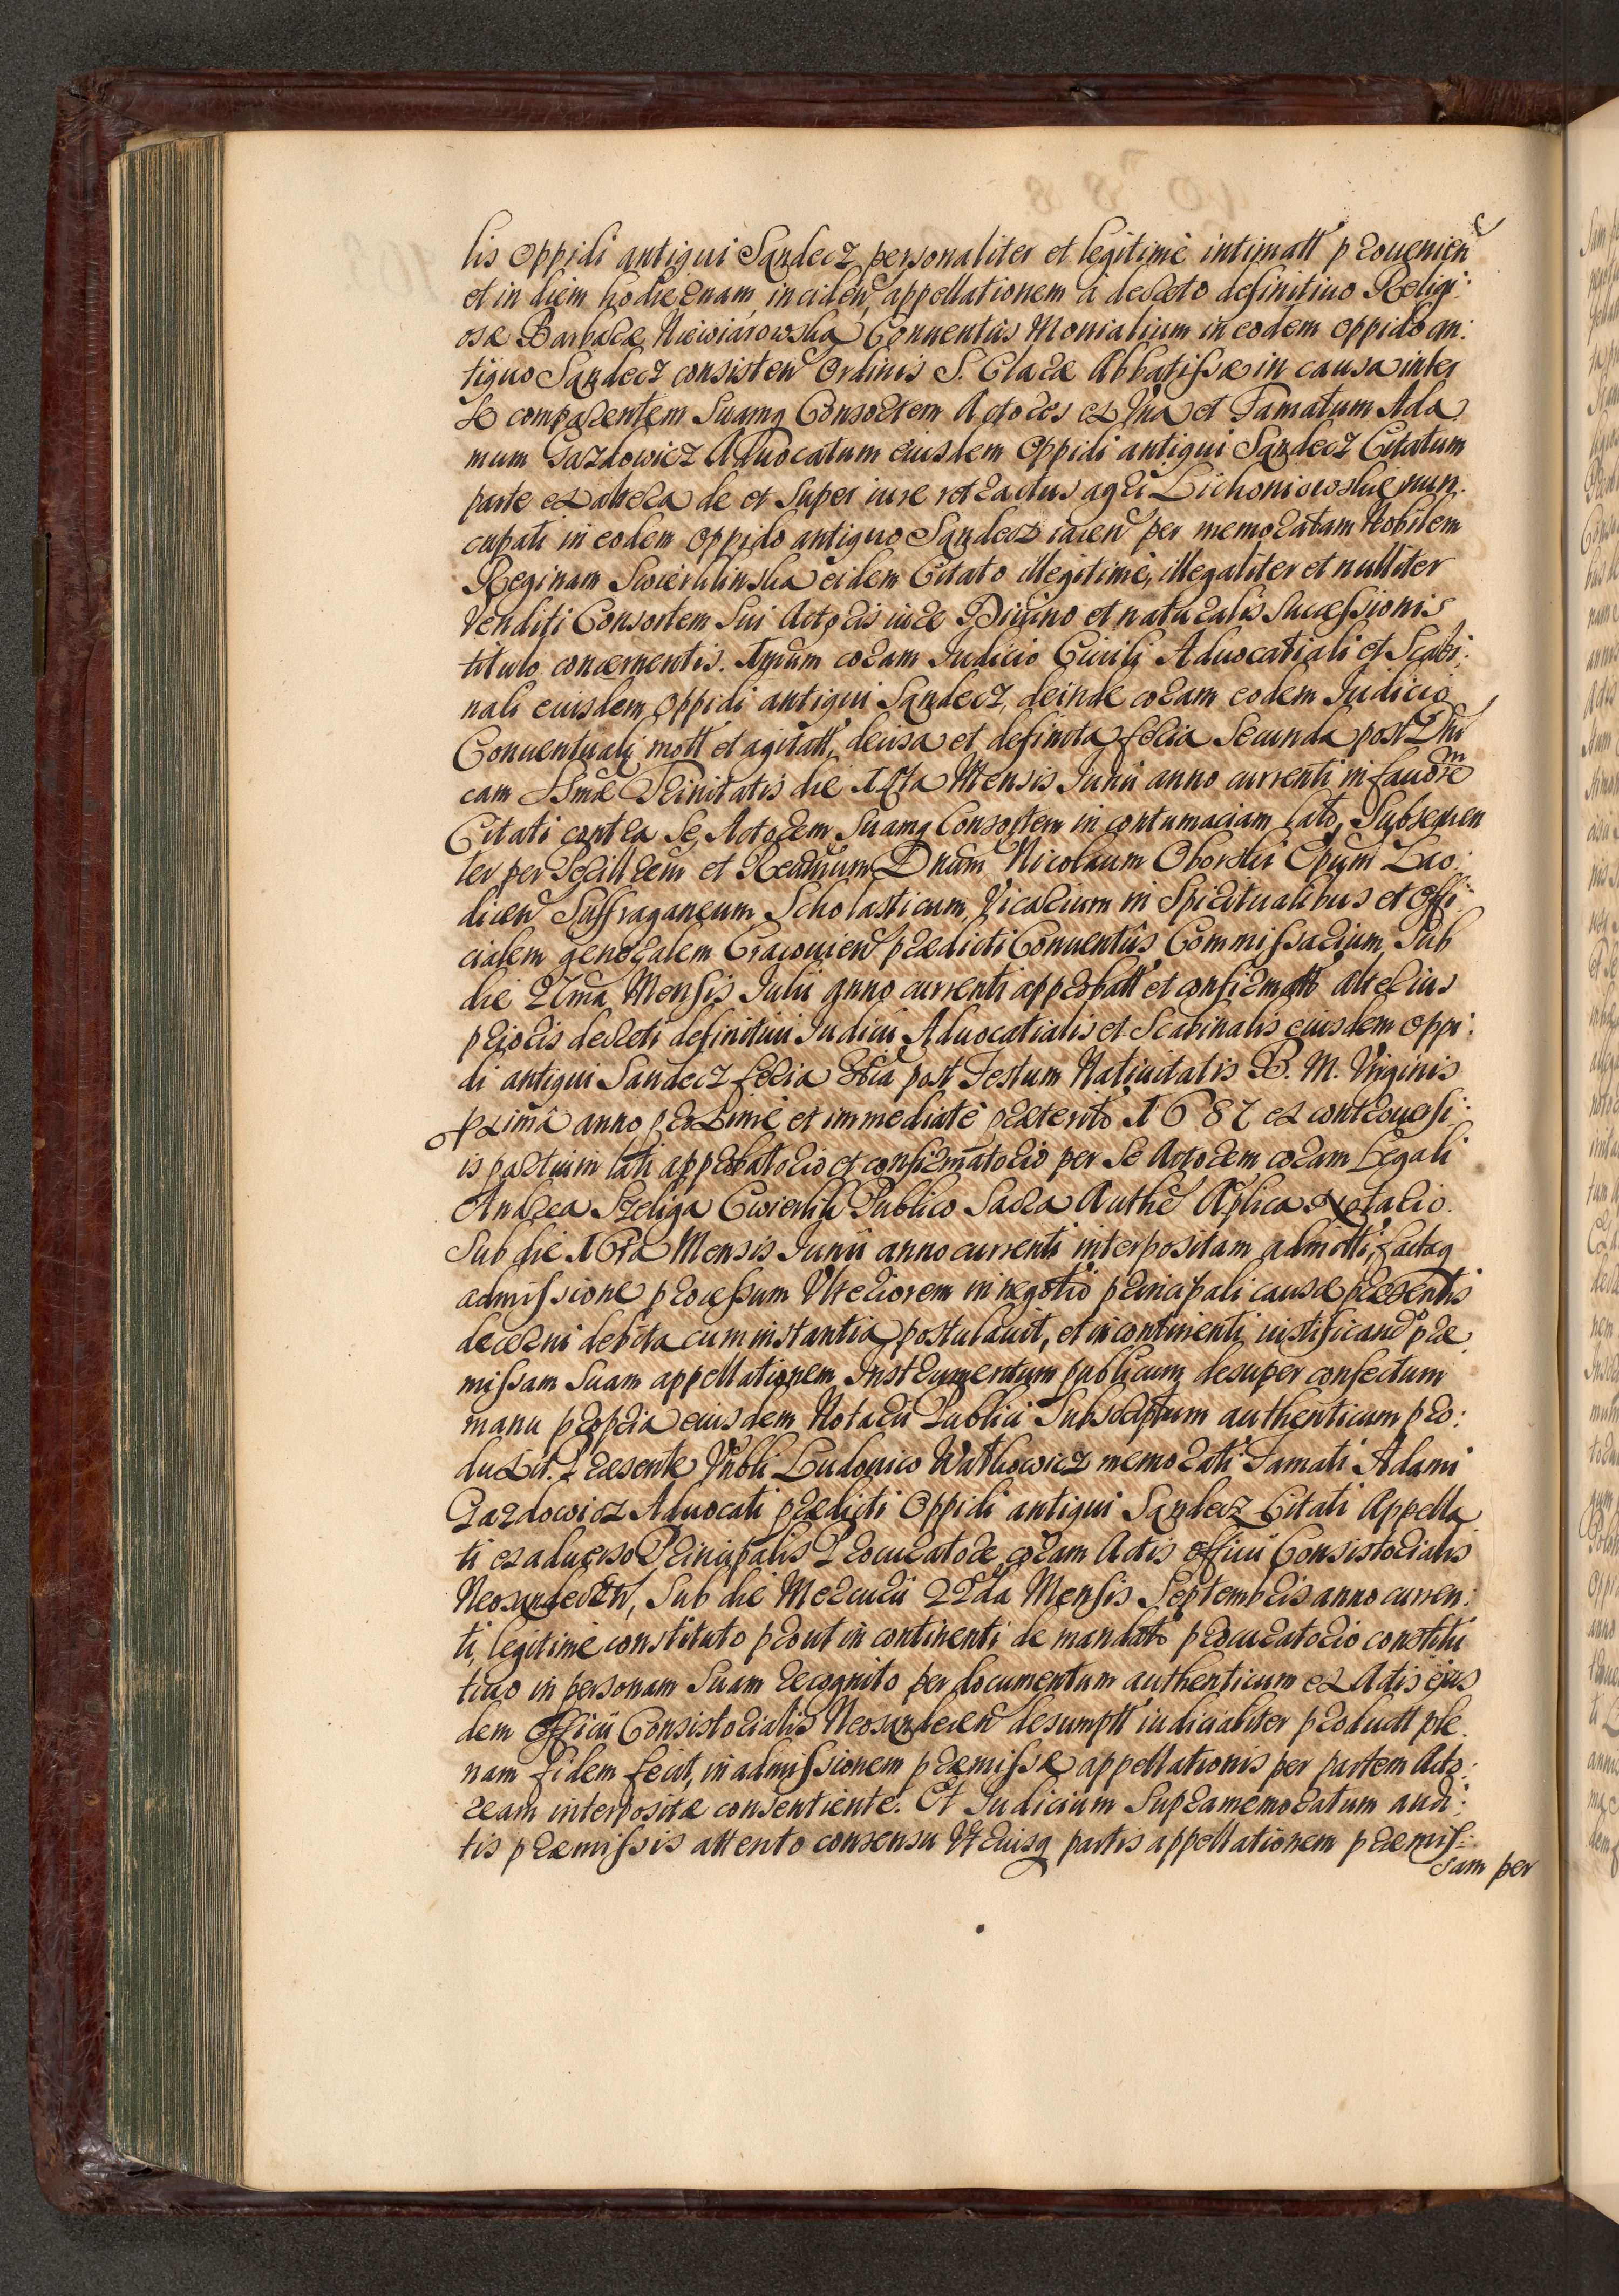 lis Oppidi antiqui Sandecz personaliter et legitimè intimatt prouenien
et in diem hodiernam inciden appellationem à decreto definitiuo Religi:
osæ Barbaræ Niewiarowska Conuentûs Monialium in eodem oppido an:
tiquo Sandecz consisten Ordinis S. Claræ Abbatissæ in causa inter
se comparentem Suamq Consortem Actores ex Vna et Famatum Ada
mum Gazdowicz Aduocatum eiusdem Oppidi antiqui Sandecz Citatum
parte ex altera de et super iure retractus agri Lichoniowskie nun:
cupati in eodem oppido antiquo Sandecz iacen per memoratam Nobilem
Reginam Swierklinska eidem Citato illegitimè, illegaliter et nulliter
Venditi Consortem Sui Actoris iure Diuino et naturalis successionis
titulo concernentis. Primum coram Iudicio Ciuili Aduocatiali et Scabi:
nali eiusdem Oppidi antiqui Sandecz, deinde coram eodem Iudicio
Conuentuali mott et agitatt, decisa et definita feria Secunda post Dni
cam SSmæ Trinitatis die 14ta Mensis Iunii anno currenti in fauorem
Citati contra Se Actorem Suamq Consortem in contumaciam lato, Subsequen
ter per Perillrem et Rendnum Dnum Nicolaum Oborski Epum Lao
dicen Suffraganeum, Scholasticum, Vicarium in Spiritualibus et Offi:
cialem generalem Cracouien prædicti Conuentûs Commissarium, Sub
die 27ma Mensis Iulii anno currenti approbatt et confirmatt alterius
prioris decreti definitiui Iudicii Aduocatialis et Scabinalis eiusdem Oppi:
di antiqui Sandecz feria 3tia post Festum Natiuitatis B. M. Virginis
pximâ anno proximè et immediatè præterito 1687 ex controuersi:
is partium lati approbatorio et confirmatorio per Se Actorem coram Legali
Andrea Szeliga Cwierlik Publico Sacra Authe Aplica Notario.
Sub die 16ta Mensis Iunii anno currenti interpositam admitti, factaq
admissione processum Vlteriorem in negotio principali causæ præsentis
decerni debita cum instantia postulauit, et in continenti iustificando præ
missam Suam appellationem Instrumentum publicum desuper confectum
manu propria eiusdem Notarii Publici Subscriptum authenticum pro:
duxit. Præsente Vnbli Ludouico Wathowicz memorati Famati Adami
Gazdowicz Aduocati prædicti Oppidi antiqui Sandecz Citati Appella
ti ex aduerso Principalis Procuratore coram Actis Officii Consistorialis
Neosandecen, Sub die Mercurii 22da Mensis Septembris anno curren:
ti, legitimè constituto prout in continenti de mandato procuratorio constitu
tiuo in personam Suam recognito per documentum authenticum ex Actis eius
dem Officii Consistorialis Neosandecen desumptt iudicialiter productt ple
nam fidem fecit, in admissionem præmissæ appellationis per partem Acto:
ream interpositæ consentiente. Et Iudicium Supramemoratum audi:
tis præmissis attento consensu Vtriusq partis appellationem præmis:
sam per